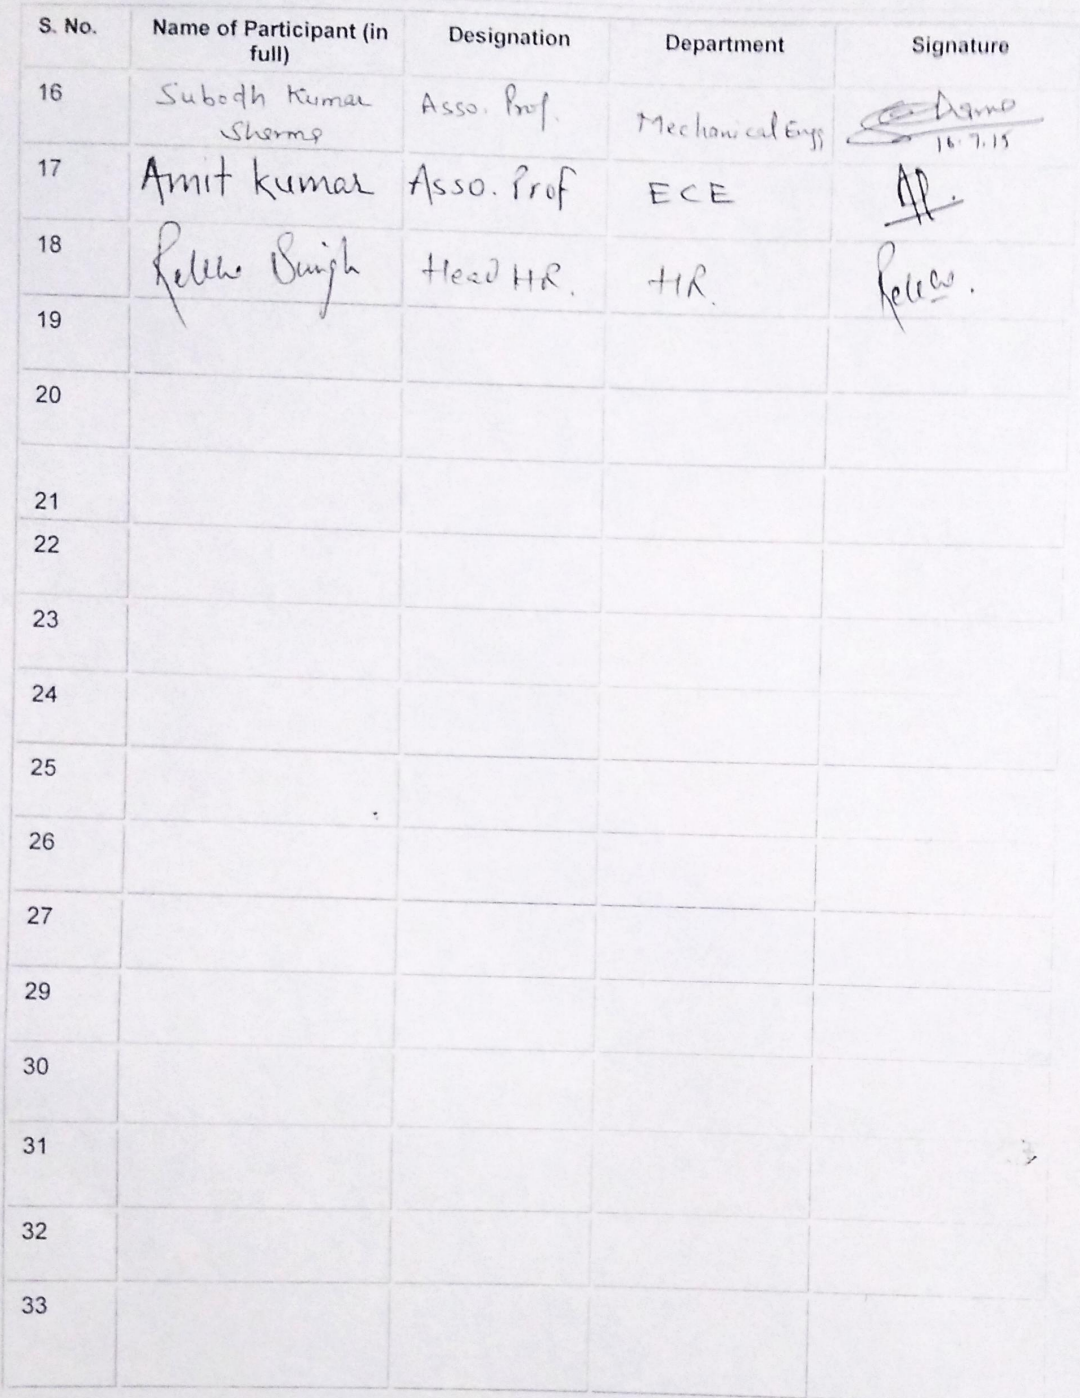 S. No. Name of Participant (in full) Designation Department Signature
16 Subodh Kumar Sharma Asso. Prof. Mechanical Engg 16.7.15
17 Amit kumar Asso. Prof ECE
18 Rekha Singh Head HR. HR. Rekha.
19
20
21
22
23
24
25
26
27
29
30
31
32
33